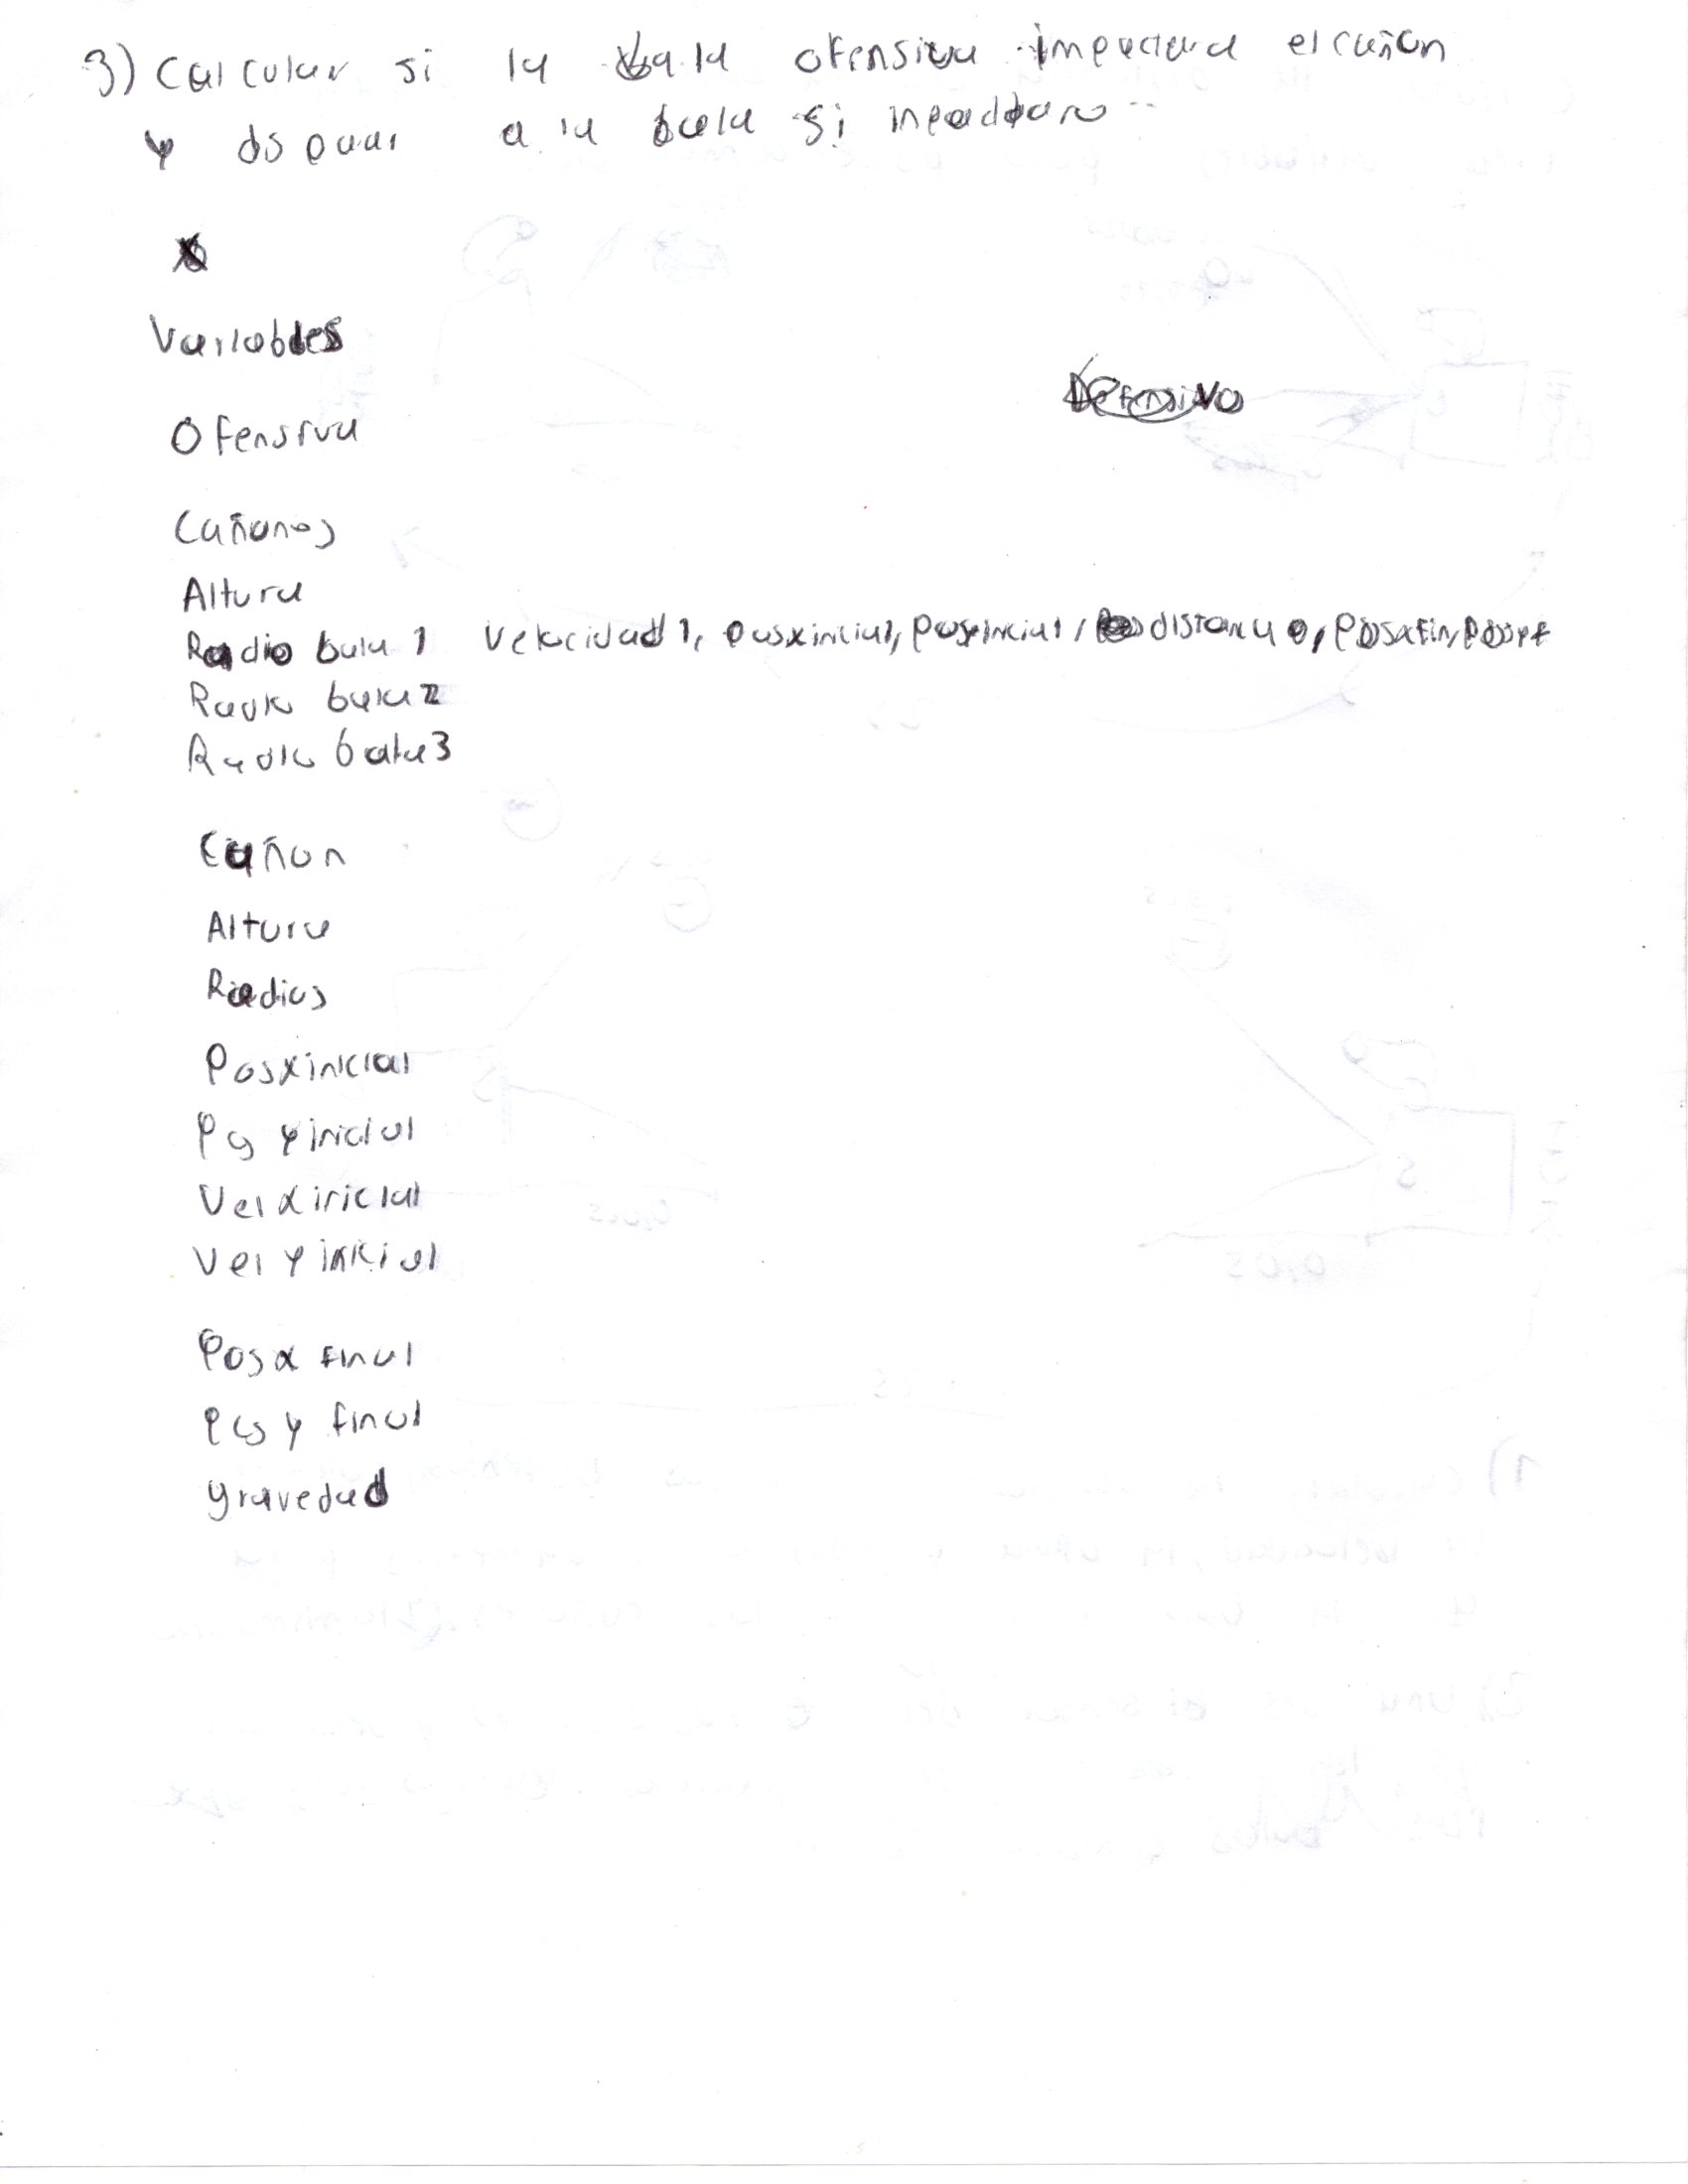 3) Calcular si la bala ofensiva impactara el cañon
y dspuar a la bala si
Variables
Defensivo
Ofensiva
Cañones
Altura
Radio bala 1 Velocidad 1, posxinicial, posyinicial, distancia, Posxfin, Posyf
Radio bala 2
Radio bala 3
Cañon
Altura
Radios
Posxinicial
Pos y inicial
Vel x inicial
Vel y inicial
Pos x final
Pos y final
gravedad